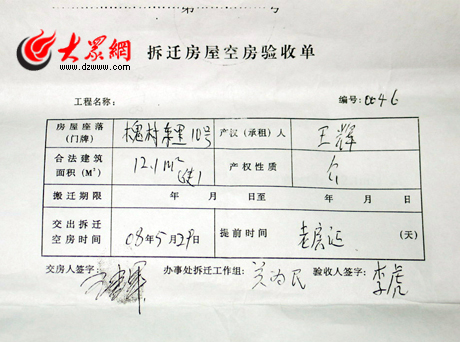 第 号
大众網
www.dzwww.com
拆迁房屋空房验收单
工程名称： 编号：0046
房屋座落（门牌） 槐村东里10号 产权（承租）人 王辉
合法建筑面积（M²） 12.1m² 产权性质
搬迁期限 年 月 日至 年 月 日
交出拆迁空房时间 08年5月29日 提前时间 （天）
交房人签字： 办事处拆迁工作组： 验收人签字：李虎